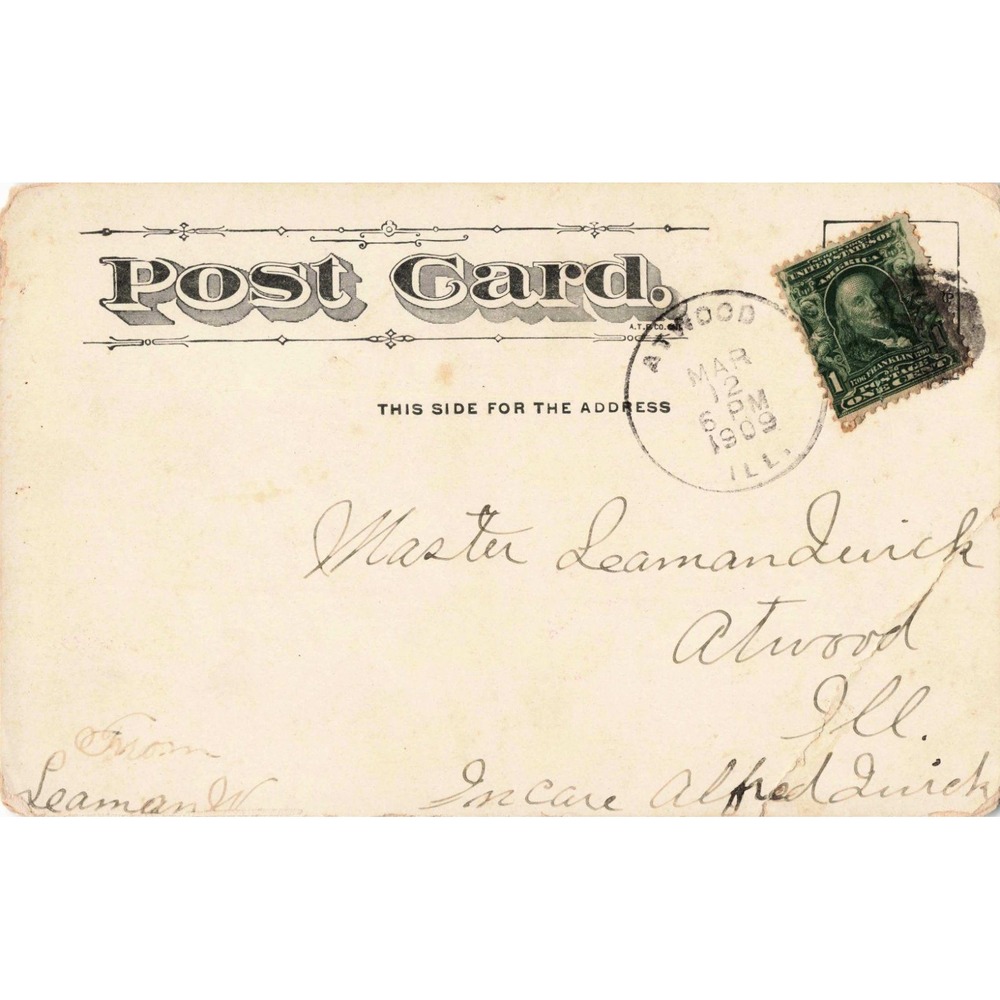 Post Card.
THIS SIDE FOR THE ADDRESS
ATWOOD
MAR
12
6 PM
1909
ILL.
UNITED STATES OF
AMERICA
1706 FRANKLIN 1790
POSTAGE
1 ONE CENT 1
Master Leaman Zwick
Atwood
Ill.
From
Leaman W
In Care Alfred Zwick